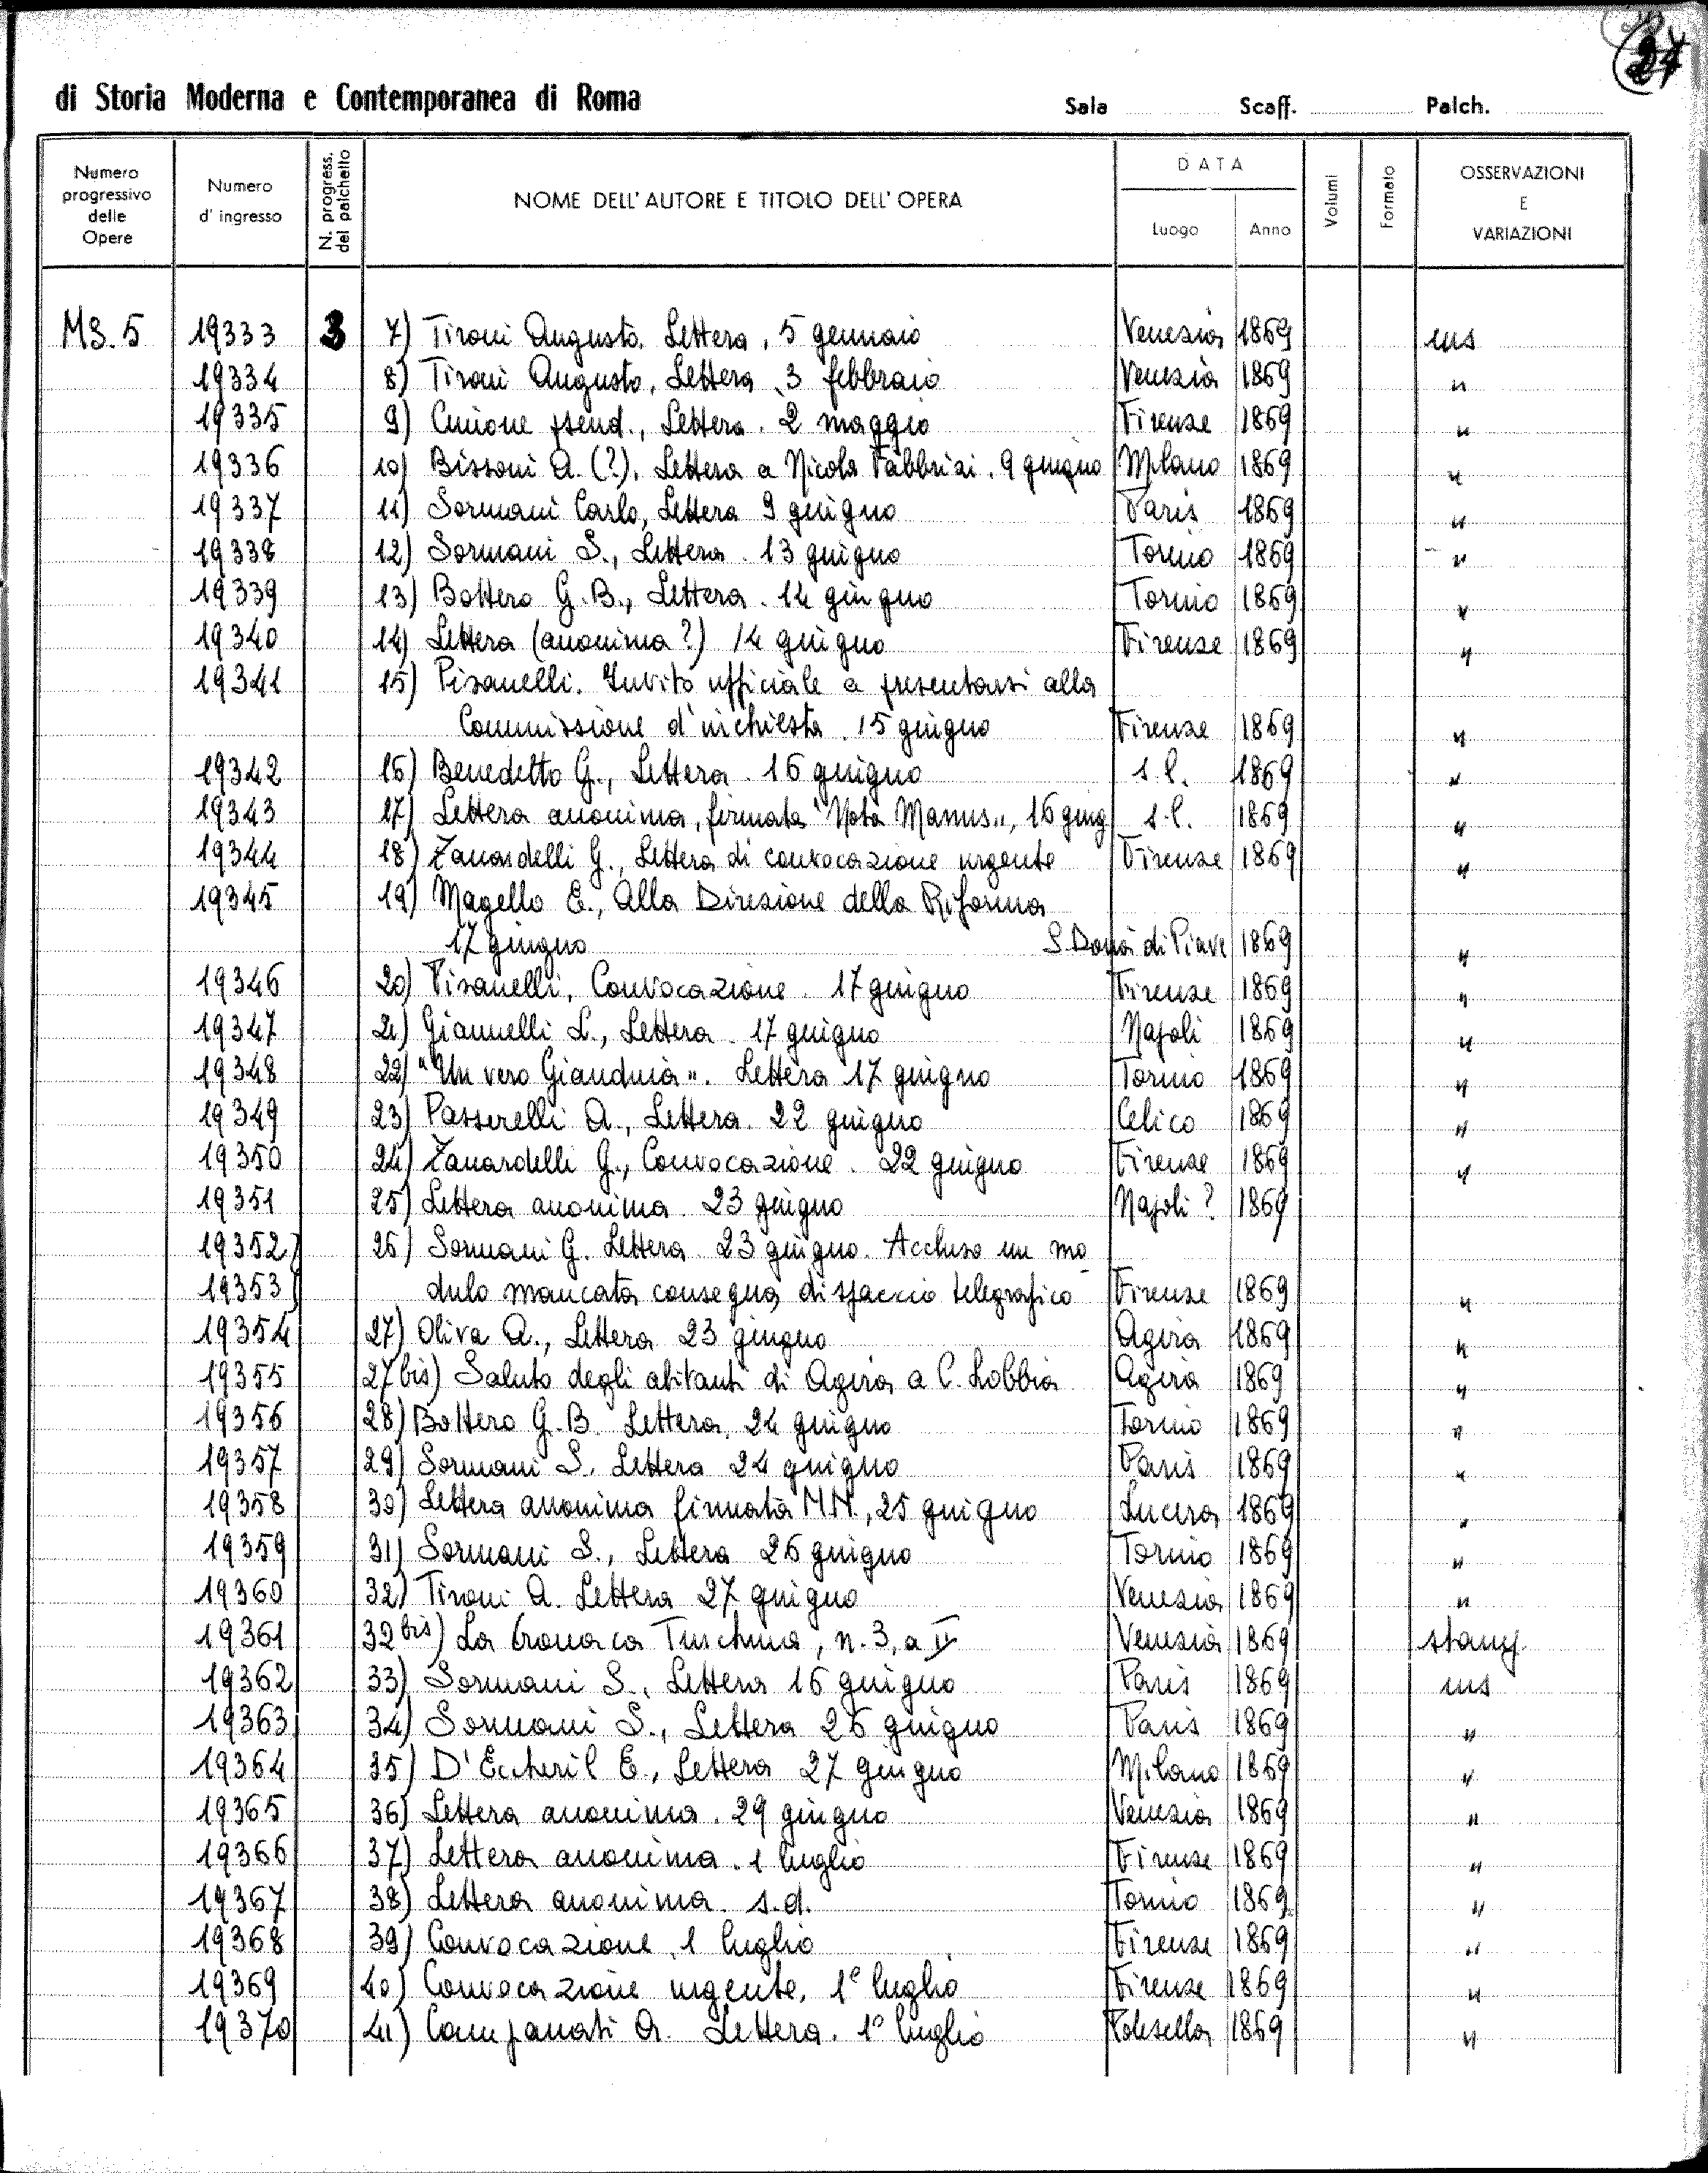 27
di Storia Moderna e Contemporanea di Roma Sala Scaff. Palch.
Numero progressivo delle Opere
Numero d' ingresso
N. progress. del palchetto
NOME DELL' AUTORE E TITOLO DELL' OPERA
DATA
Luogo
Anno
Volumi
Formato
OSSERVAZIONI E VARIAZIONI
MS. 5 19333 3 7) Tironi Augusto. Lettera, 5 gennaio Venezia 1869 ms
19334 8) Tironi Augusto, Lettera, 3 febbraio Venezia 1869 "
19335 9) Cimone pseud., Lettera. 2 maggio Firenze 1869 "
19336 10) Bissoni A. (?), Lettera a Nicola Fabbrizi. 9 giugno Milano 1869 "
19337 11) Sormani Carlo, Lettera 9 giugno Paris 1869 "
19338 12) Sormani S., Lettera. 13 giugno Torino 1869 "
19339 13) Bottero G.B., Lettera. 14 giugno Torino 1869 "
19340 14) Lettera (anonima?) 14 giugno Firenze 1869 "
19341 15) Pisanelli. Invito ufficiale a presentarsi alla
Commissione d'inchiesta. 15 giugno Firenze 1869 "
19342 16) Benedetto G., Lettera. 16 giugno s.l. 1869 "
19343 17) Lettera anonima, firmata "Nota Manus", 16 giug s.l. 1869 "
19344 18) Zanardelli G., Lettera di convocazione urgente Firenze 1869 "
19345 19) Magello E., Alla Direzione della Riforma
17 giugno S. Donà di Piave 1869 "
19346 20) Pisanelli, Convocazione. 17 giugno Firenze 1869 "
19347 21) Giannelli L., Lettera. 17 giugno Napoli 1869 "
19348 22) "Un vero Gianduia". Lettera 17 giugno Torino 1869 "
19349 23) Passerelli A., Lettera. 22 giugno Celico 1869 "
19350 24) Zanardelli G., Convocazione. 22 giugno Firenze 1869 "
19351 25) Lettera anonima. 23 giugno Napoli? 1869
19352 26) Sormani G. Lettera. 23 giugno. Accluso un mo
19353 dulo mancata consegna dispaccio telegrafico Firenze 1869 "
19354 27) Oliva A., Lettera 23 giugno Agira 1869 "
19355 27 bis) Saluto degli abitanti di Agira a C. Lobbia Agira 1869 "
19356 28) Bottero G.B. Lettera, 24 giugno Torino 1869 "
19357 29) Sormani S. Lettera 24 giugno Paris 1869 "
19358 30) Lettera anonima firmata M.N., 25 giugno Lucera 1869 "
19359 31) Sormani S., Lettera 26 giugno Torino 1869 "
19360 32) Tironi A. Lettera 27 giugno Venezia 1869 "
19361 32 bis) La Cronaca Turchina, n. 3, a. IV Venezia 1869 stamp.
19362 33) Sormani S., Lettera 16 giugno Paris 1869 ms
19363 34) Sormani S., Lettera 26 giugno Paris 1869 "
19364 35) D'Eccheril E., Lettera 27 giugno Milano 1869 "
19365 36) Lettera anonima. 29 giugno Venezia 1869 "
19366 37) Lettera anonima. 1 luglio Firenze 1869 "
19367 38) Lettera anonima. s.d. Torino 1869 "
19368 39) Convocazione, 1 luglio Firenze 1869 "
19369 40) Convocazione urgente, 1° luglio Firenze 1869 "
19370 41) Campanati A. Lettera. 1° luglio Polesella 1869 "